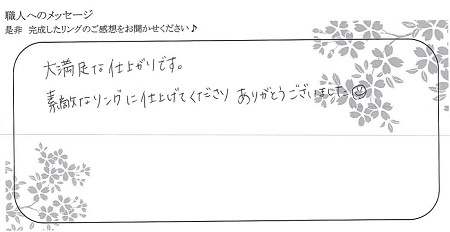 職人へのメッセージ
是非 完成したリングのご感想をお聞かせください♪
大満足な仕上がりです。
素敵なリングに仕上げてくださり ありがとうございました☺